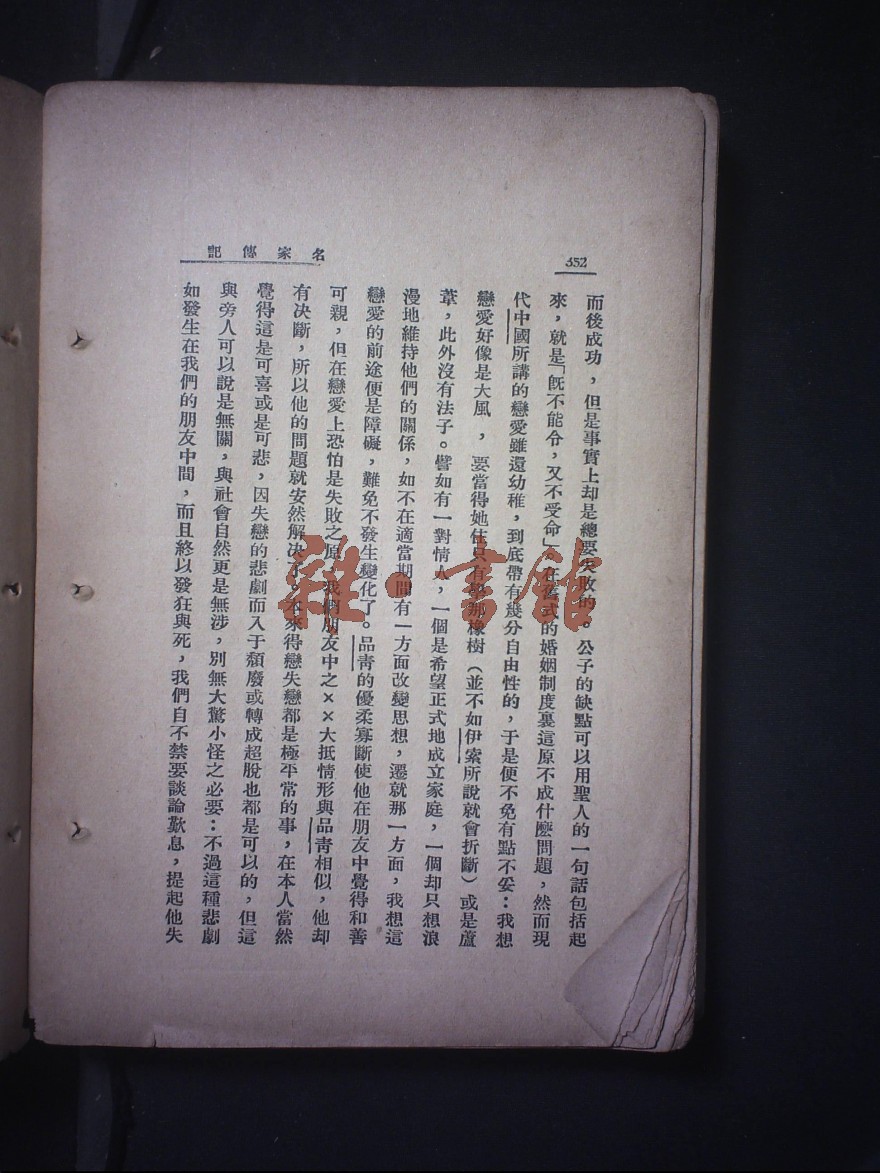 352
名家傳記
而後成功，但是事實上却是總要失敗的。公子的缺點可以用聖人的一句話包括起
來，就是「旣不能令，又不受命」。在舊式的婚姻制度裏這原不成什麽問題，然而現
代中國所講的戀愛雖還幼稚，到底帶有幾分自由性的，于是便不免有點不妥：我想
戀愛好像是大風，要當得她住只有學那橡樹（並不如伊索所說就會折斷）或是蘆
葦，此外沒有法子。譬如有一對情人，一個是希望正式地成立家庭，一個却只想浪
漫地維持他們的關係，如不在適當期間有一方面改變思想，遷就那一方面，我想這
戀愛的前途便是障礙，難免不發生變化了。品靑的優柔寡斷使他在朋友中覺得和善
可親，但在戀愛上恐怕是失敗之原，我們朋友中之××大抵情形與品靑相似，他却
有决斷，所以他的問題就安然解决了。本來得戀失戀都是極平常的事，在本人當然
覺得這是可喜或是可悲，因失戀的悲劇而入于頹廢或轉成超脫也都是可以的，但這
與旁人可以說是無關，與社會自然更是無涉，別無大驚小怪之必要：不過這種悲劇
如發生在我們的朋友中間，而且終以發狂與死，我們自不禁要談論歎息，提起他失
雜·書館